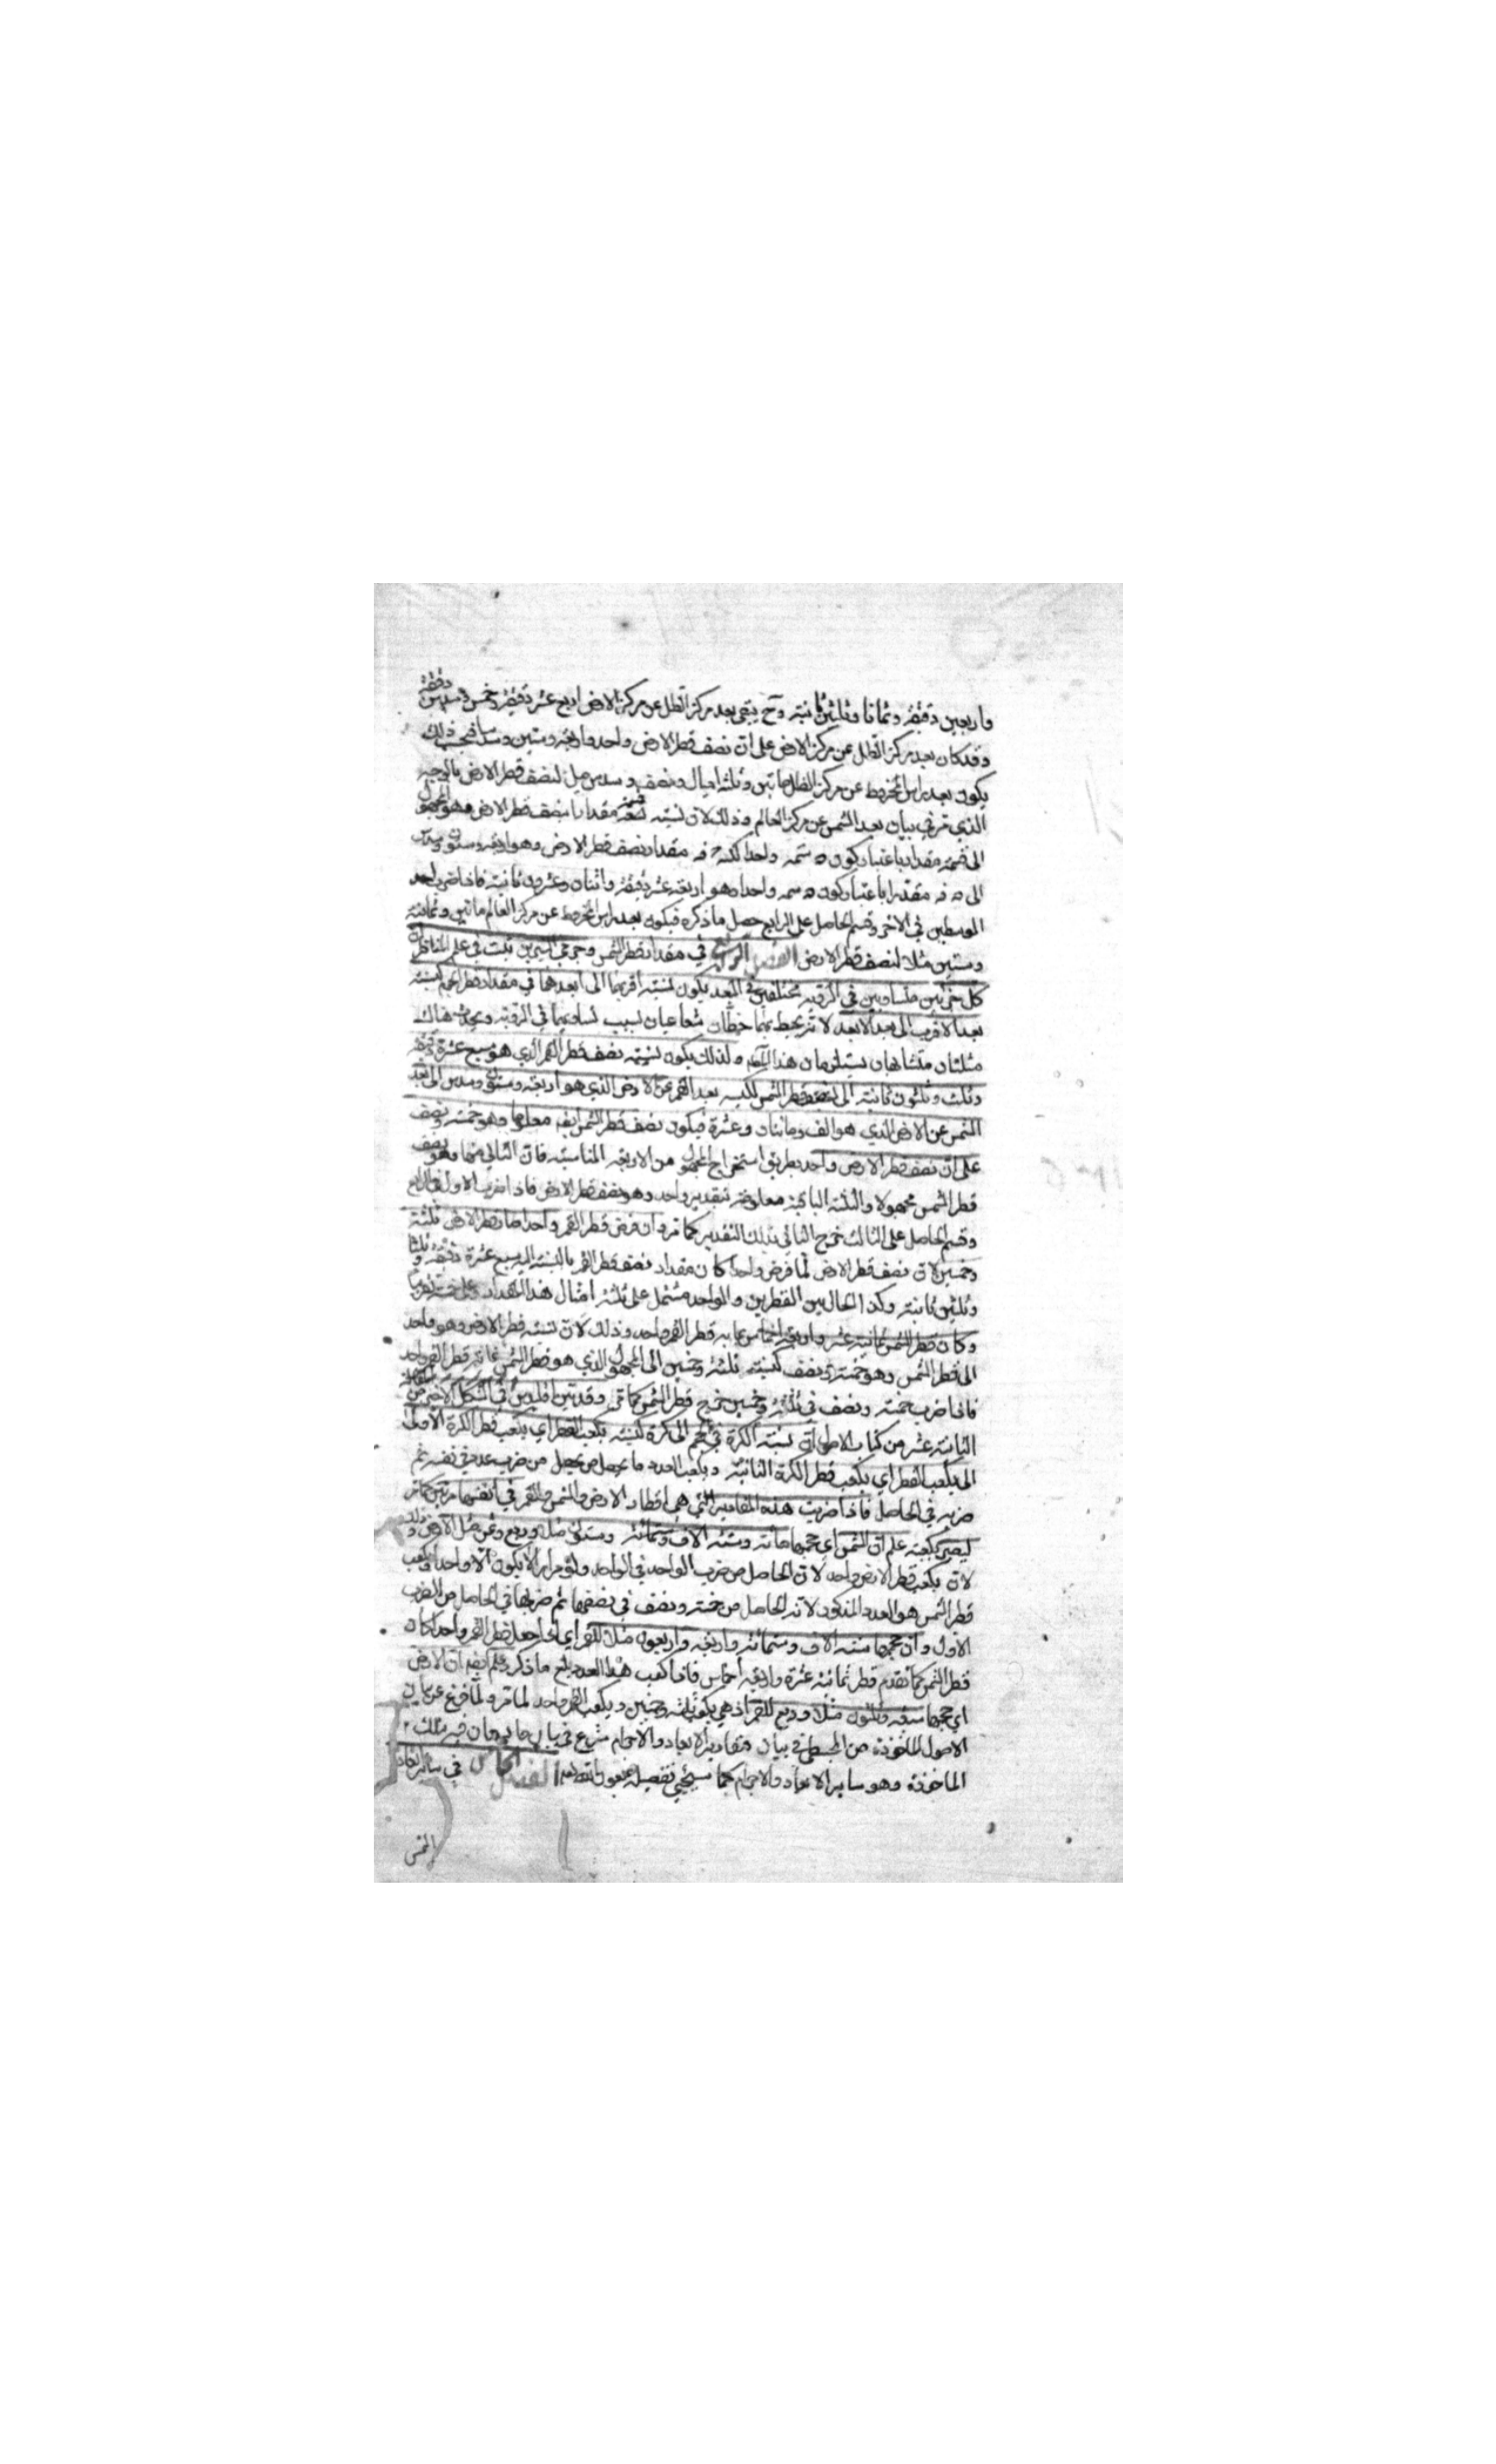 واربعين دقيقة وثمانا وثلثين ثانية وح يبقى بعد مركز الظل عن مركز الارض اربع عشر دقيقة وخمس وسدس دقيقة
وقد كان بعد مركز الظل عن مركز الارض على ان نصف قطر الارض واحد واربعة وستين وسدسا فيجب لذلك
يكون بعد راس المخروط عن مركز الظل مائتين وثلثة اميال ونصف وسدس ميل لنصف قطر الارض بالوجه
الذي مر في بيان بعد الشمس عن مركز العالم وذلك لان نسبة مقدارا بنصف قطر الارض وهو المجهول
الى مقدار باعتبار كون واحدا مقدار نصف قطر الارض وهو اربعة وستون وسدس
الى باعتبار كون واحدا وهو اربعة عشر دقيقة واثنان وعشرون ثانية فاذا ضرب احد
الوسطين في الاخر وقسم الحاصل على الرابع حصل ما ذكره فيكون بعد راس المخروط عن مركز العالم مائتين وثمانية
وستين مثلا لنصف قطر الارض الفصل الرابع في مقدار قطر الشمس وجرمي النيرين ثبت في علم المناظر ان
كل متساويين في الرؤية مختلفين في البعد يكون نسبة اقربهما الى ابعدهما في مقدار قطرهما كنسبة
بعد الاقرب الى بعد الابعد لانه يحيط بهما خطان شعاعيان بسبب تساويهما في الرؤية ويحدث هناك
مثلثان متشابهان يستلزمان هذا الحكم ولذلك يكون نسبة نصف قطر القمر الذي هو سبع عشرة دقيقة
وثلث وثلثون ثانية الى نصف قطر الشمس كنسبة بعد القمر عن الارض الذي هو اربعة وستون وسدس الى بعد
الشمس عن الارض الذي هو الف ومائتان وعشرة فيكون نصف قطر الشمس ايضا معلوما وهو خمسة ونصف
على ان نصف قطر الارض واحد بطريق استخراج المجهول من الاربعة المتناسبة فان الثاني منها وهو نصف
قطر الشمس مجهولا والثلثة الباقية معلومة بتقدير واحد وهو نصف قطر الارض فاذا ضرب الاول في الرابع
وقسم الحاصل على الثالث خرج الثاني بذلك التقدير كما مر وان فرض قطر القمر واحدا صار قطر الارض ثلثة
وخمسين لان نصف قطر الارض لما فرض واحدا كان مقدار نصف قطر القمر بالنسبة اليه سبع عشرة دقيقة وثلثا
وثلثين ثانية وكذا الحال بين القطرين والواحد مشتمل على ثلثة امثال هذا المقدار وعلى خمسيه تقريبا
وكان قطر الشمس ثمانية عشر واربعة اخماس بما به قطر القمر واحد وذلك لان نسبة قطر الارض وهو واحد
الى قطر الشمس وهو خمسة ونصف كنسبة ثلثة وخمسين الى المجهول الذي هو قطر الشمس بما به قطر القمر واحد
فاذا ضرب خمسة ونصف في ثلثة وخمسين خرج قطر الشمس كما مر وقد تبين اقليدس في الشكل الاخير من المقالة
الثانية عشر من كتاب الاصول ان نسبة الكرة في الحجم الى كرة كنسبة مكعب القطر اي مكعب قطر الكرة الاولى
الى مكعب القطر اي مكعب قطر الكرة الثانية ومكعب العدد ما يحصل من ضرب عدد في نفسه ثم
ضربه في الحاصل فاذا ضربت هذه المقادير التي هي اقطار الارض والشمس والقمر في انفسها مرتين كما مر
ليصير مكعبة علم ان الشمس اي حجمها مائة وستة الاف وستمائة وستون مثلا وربع وثمن مثل الارض وذلك
لان مكعب قطر الارض واحد لان الحاصل من ضرب الواحد في الواحد ولو مرارا لا يكون الا واحدا ومكعب
قطر الشمس هو العدد المذكور لانه الحاصل من خمسة ونصف في نفسها ثم ضربها في الحاصل من الضرب
الاول وان حجمها ستة الاف وستمائة واربعة واربعون مثلا للقمر اي اذا جعل قطر القمر واحدا كان
قطر الشمس كما تقدم قطر ثمانية عشرة واربعة اخماس فاذا كعب هذا العدد بلغ ما ذكر وعلم ايضا ان الارض
اي حجمها تسعة وثلثون مثلا وربع للقمر اذ هي مكعب ثلثة وخمسين ومكعب القمر واحد لما مر ولما فرغ عن بيان
الاصول الماخوذة من المجسطي في بيان مقادير الابعاد والاجرام شرع في بيان
الماخوذة وهو ساير الابعاد والاجرام كما سيجئ تفصيله الفصل الخامس في سائر ابعاد
الخمس